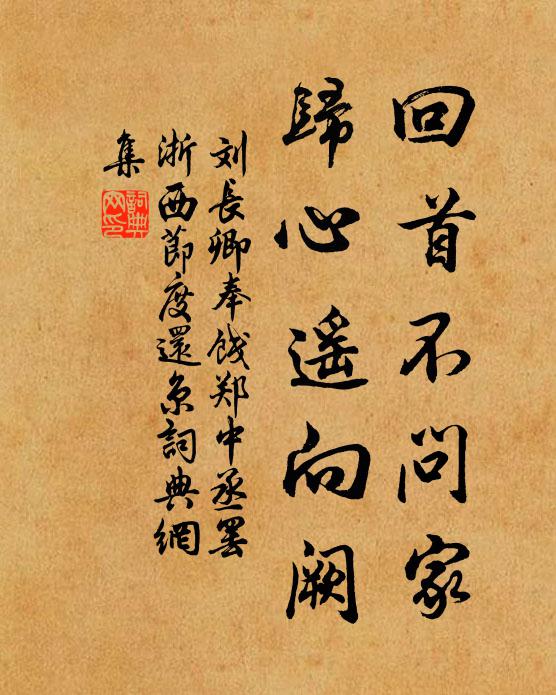 回首不问家
歸心遥向阙
刘長卿奉餞郑中丞罢
浙西節度還京詞典網
集
詞典
网印